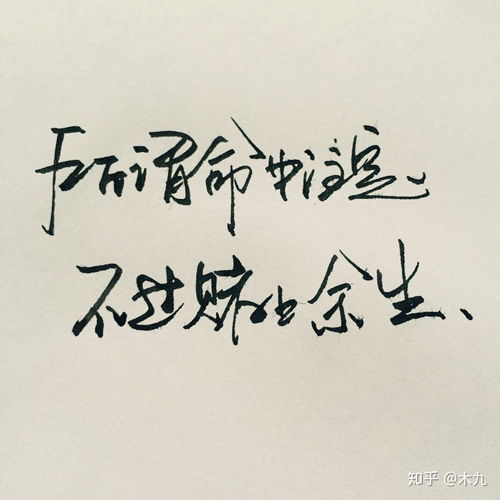 所谓命中注定、
不过赌上余生、
知乎 @木九